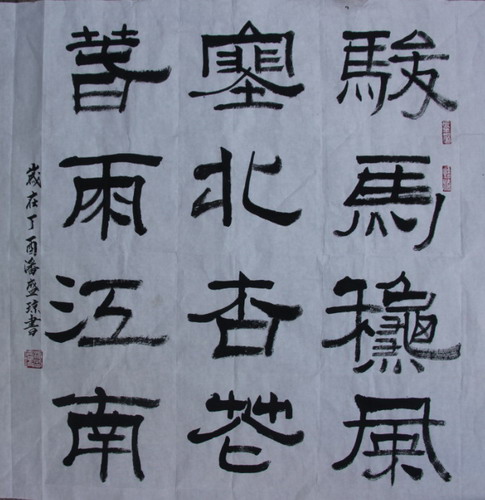 駿馬龝風
塞北杏花
萅雨江南
歲在丁酉海盛琼書